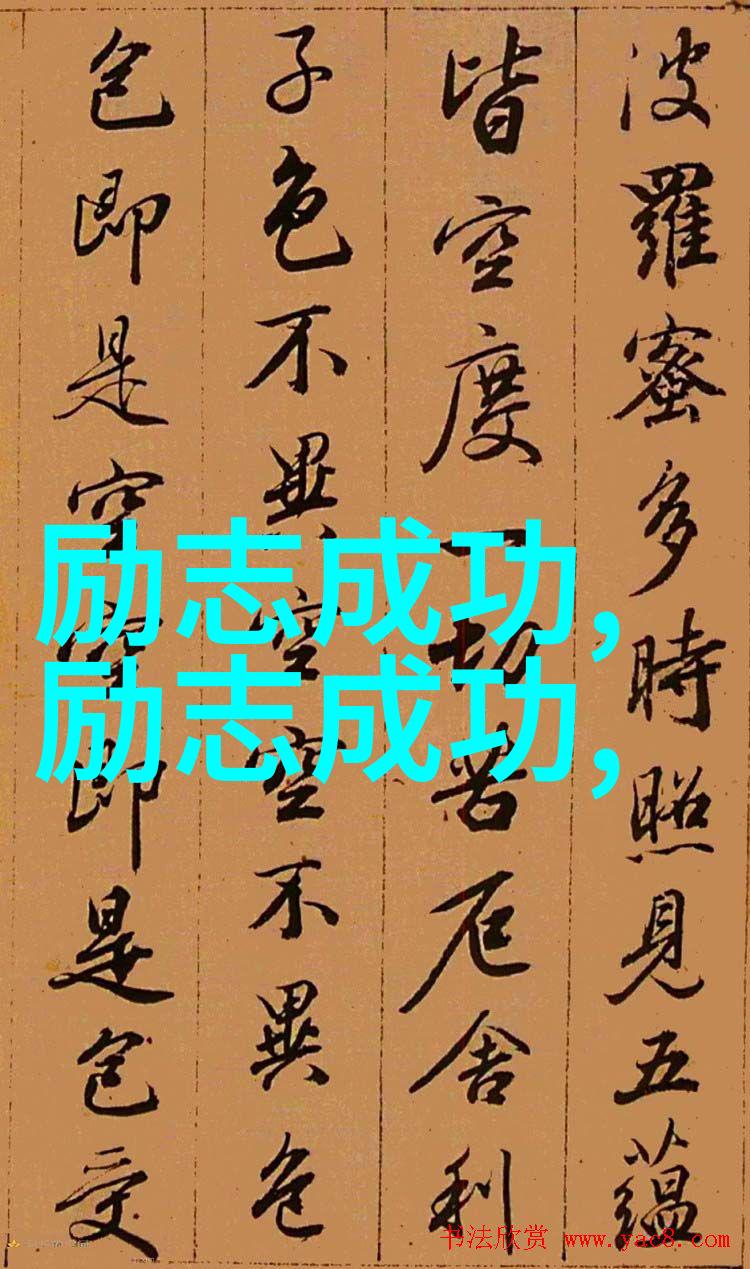 波羅蜜多時照見五蘊
皆空度一切苦厄舍利
子色不異空空不異色
色即是空空即是色受
励志成功,
励志成功,
书法欣赏 www.yac8.com